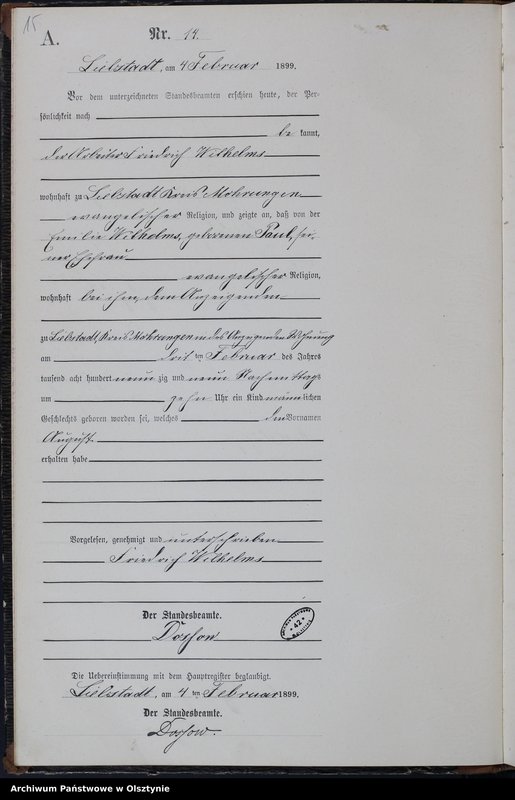 15
A.
Nr. 14.
Liebstadt, am 4 Februar 1899.
Vor dem unterzeichneten Standesbeamten erschien heute, der Per-
sönlichkeit nach
be kannt,
der Arbeiter Friedrich Wilhelms
wohnhaft zu Liebstadt Kreis Mohrungen
evangelischer Religion, und zeigte an, daß von der
Emilie Wilhelms, geborenen Paul, sei-
ner Ehefrau
evangelischer Religion,
wohnhaft bei ihm, dem Anzeigenden
zu Liebstadt, Kreis Mohrungen in des Anzeigenden Wohnung
am drit ten Februar des Jahres
tausend acht hundert neun zig und neun Nachmittags
um zehn Uhr ein Kind männlichen
Geschlechts geboren worden sei, welches den Vornamen
August
erhalten habe
Vorgelesen, genehmigt und unterschrieben
Friedrich Wilhelms
Der Standesbeamte.
42
Die Uebereinstimmung mit dem Hauptregister beglaubigt.
Liebstadt, am 4 ten Februar 1899.
Der Standesbeamte.
Archiwum Państwowe w Olsztynie